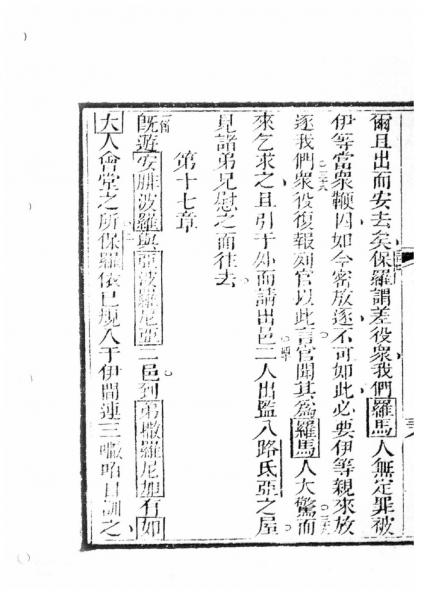 爾且出而安去矣保羅謂差役衆我們羅馬人無定罪被
伊等當衆鞭因如今密放逐不可如此必要伊等親來放
逐我們衆役復報刻官以此言官聞其為羅馬人大驚而
來乞求之且引于外而請出邑二人出監入路氐亞之屋
見諸弟兄慰之而往去
第十七章
既遊安腓波羅與亞波羅尼亞二邑到弟撒羅尼迦有如
大人會堂之所保羅依已規入于伊間連三嗽咟日訓之